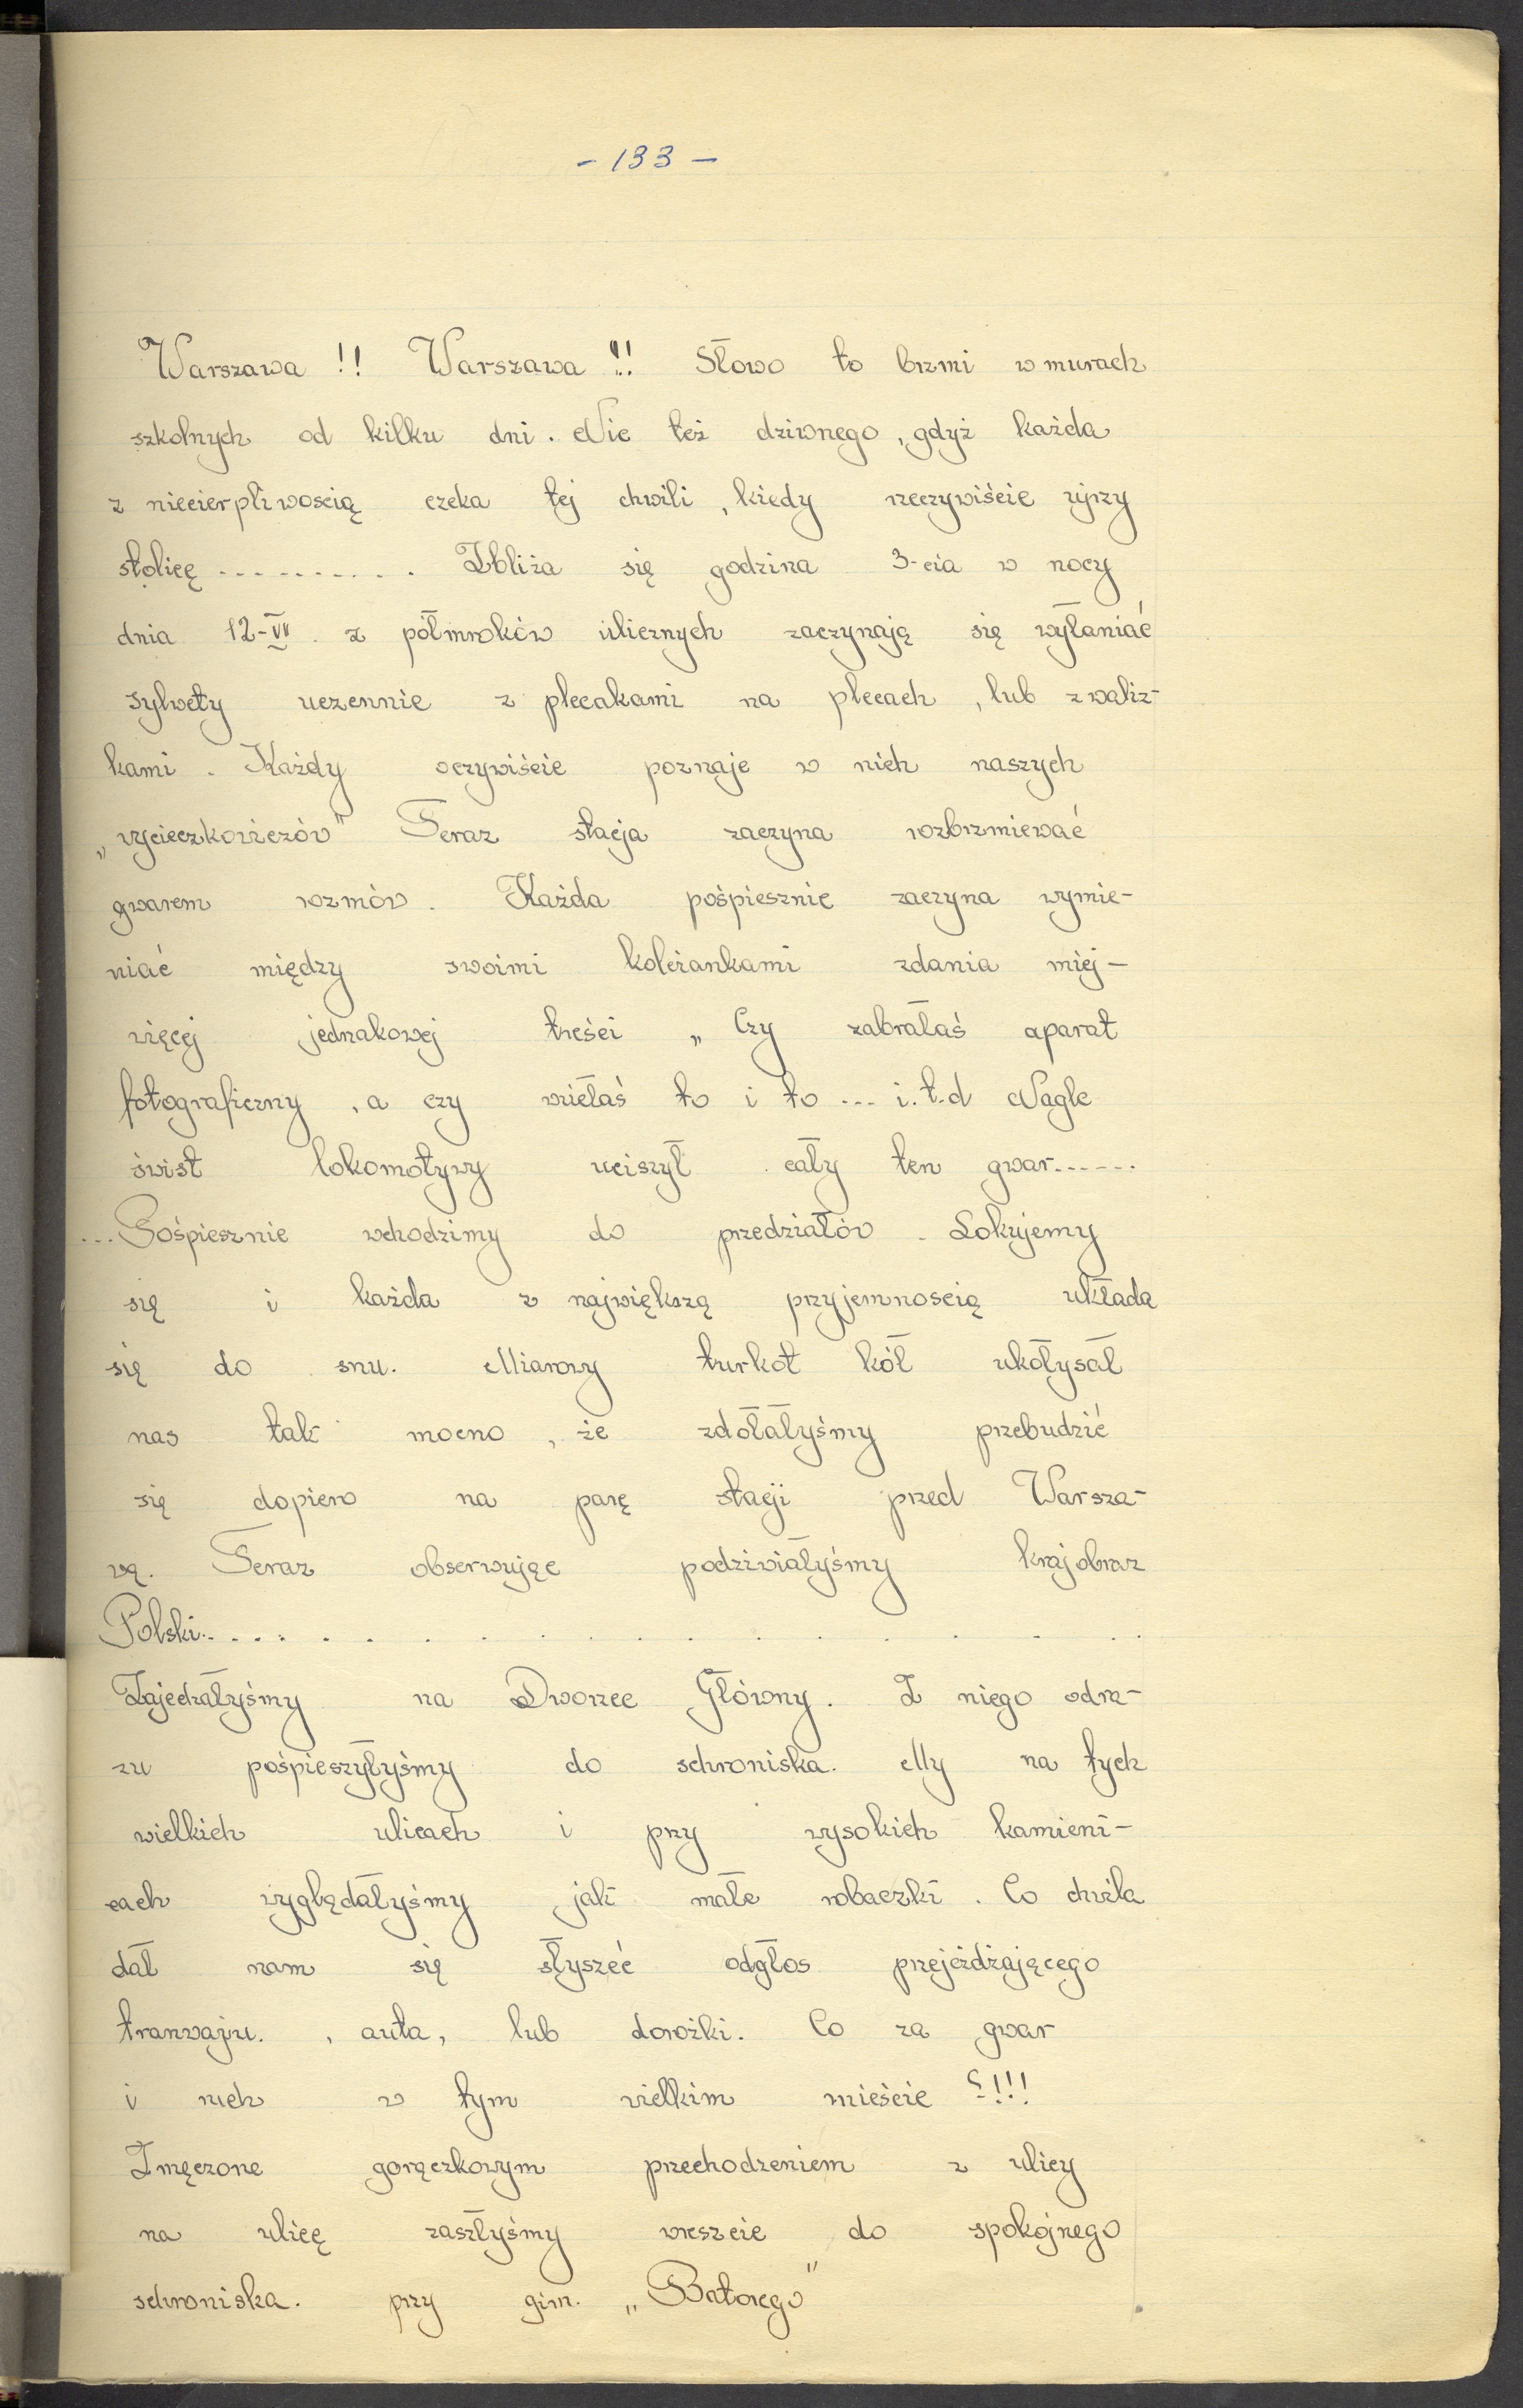 - 133 -
Warszawa !! Warszawa !!! Słowo to brzmi w murach
szkolnych od kilku dni. Nic też dziwnego, gdyż każda
z niecierpliwoscią czeka tej chwili, kiedy rzeczywiście ujrzy
stolicę ........... Zbliża się godzina 3-cia w nocy
dnia 12-VI. z półmroków ulicznych zaczynają się wyłaniać
sylwety uczennic z plecakami na plecach, lub z waliz-
kami. Każdy oczywiście poznaje w nich naszych
„wycieczkowiczów" Teraz stacja zaczyna rozbrzmiewać
gwarem rozmów. Każda pośpiesznie zaczyna wymie-
niać między swoimi koleżankami zdania miej-
więcej jednakowej treści „Czy zabrałaś aparat
fotograficzny, a czy wzięłaś to i to ... i.t.d Nagle
świst lokomotywy uciszył cały ten gwar......
...Pośpiesznie wchodzimy do przedziałów. Lokujemy
się i każda z największą przyjemnoscią układa
się do snu. Miarowy turkot kół ukołysał
nas tak mocno, że zdołałyśmy przebudzić
się dopiero na parę stacji przed Warsza-
wą. Teraz obserwując podziwiałyśmy krajobraz
Polski. . . . . . . . . . . . . . . . . . .
Zajechałyśmy na Dworzec Główny. Z niego odra-
zu pośpieszyłyśmy do schroniska. My na tych
wielkich ulicach i przy wysokich kamieni-
cach wyglądałyśmy jak małe robaczki. Co chwila
dał nam się słyszeć odgłos przejeżdżającego
tramwaju. , auta, lub dorożki. Co za gwar
i ruch w tym wielkim mieście ?!!!
Zmęczone gorączkowym przechodzeniem z ulicy
na ulicę zaszłyśmy wreszcie do spokojnego
schroniska. przy gim. „Batorego"